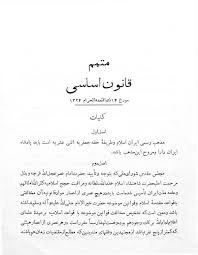 متمم
قانون اساسی
مورخ ۱۴ ذی‌القعدة الحرام ۱۳۲۴
کلیات
اصل اول
مذهب رسمی ایران اسلام و طریقهٔ حقه جعفریه اثنی عشریه است باید پادشاه
ایران دارا و مروج این مذهب باشد
اصل دوم
مجلس مقدس شورای ملی که بتوجه و تأیید حضرت امام عصر عجل الله فرجه و بذل
مرحمت اعلیحضرت شاهنشاه اسلام خلدالله سلطانه و مراقبت حجج اسلامیه کثرالله امثالهم
و عامه ملت ایران تأسیس شده است باید در هیچ عصری از اعصار مواد قانونیه آن مخالفتی با
قواعد مقدسهٔ اسلام و قوانین موضوعهٔ حضرت خیرالانام صلی الله علیه و آله و سلم نداشته
باشد و معین است که تشخیص مخالفت قوانین موضوعه با قواعد اسلامیه بر عهدهٔ علمای
اعلام ادام الله برکات وجودهم بوده و هست لهذا رسماً مقرر است در هر عصری از اعصار هیئتی که
کمتر از پنج نفر نباشد از مجتهدین و فقهای متدینین که مطلع از مقتضیات زمان هم باشند